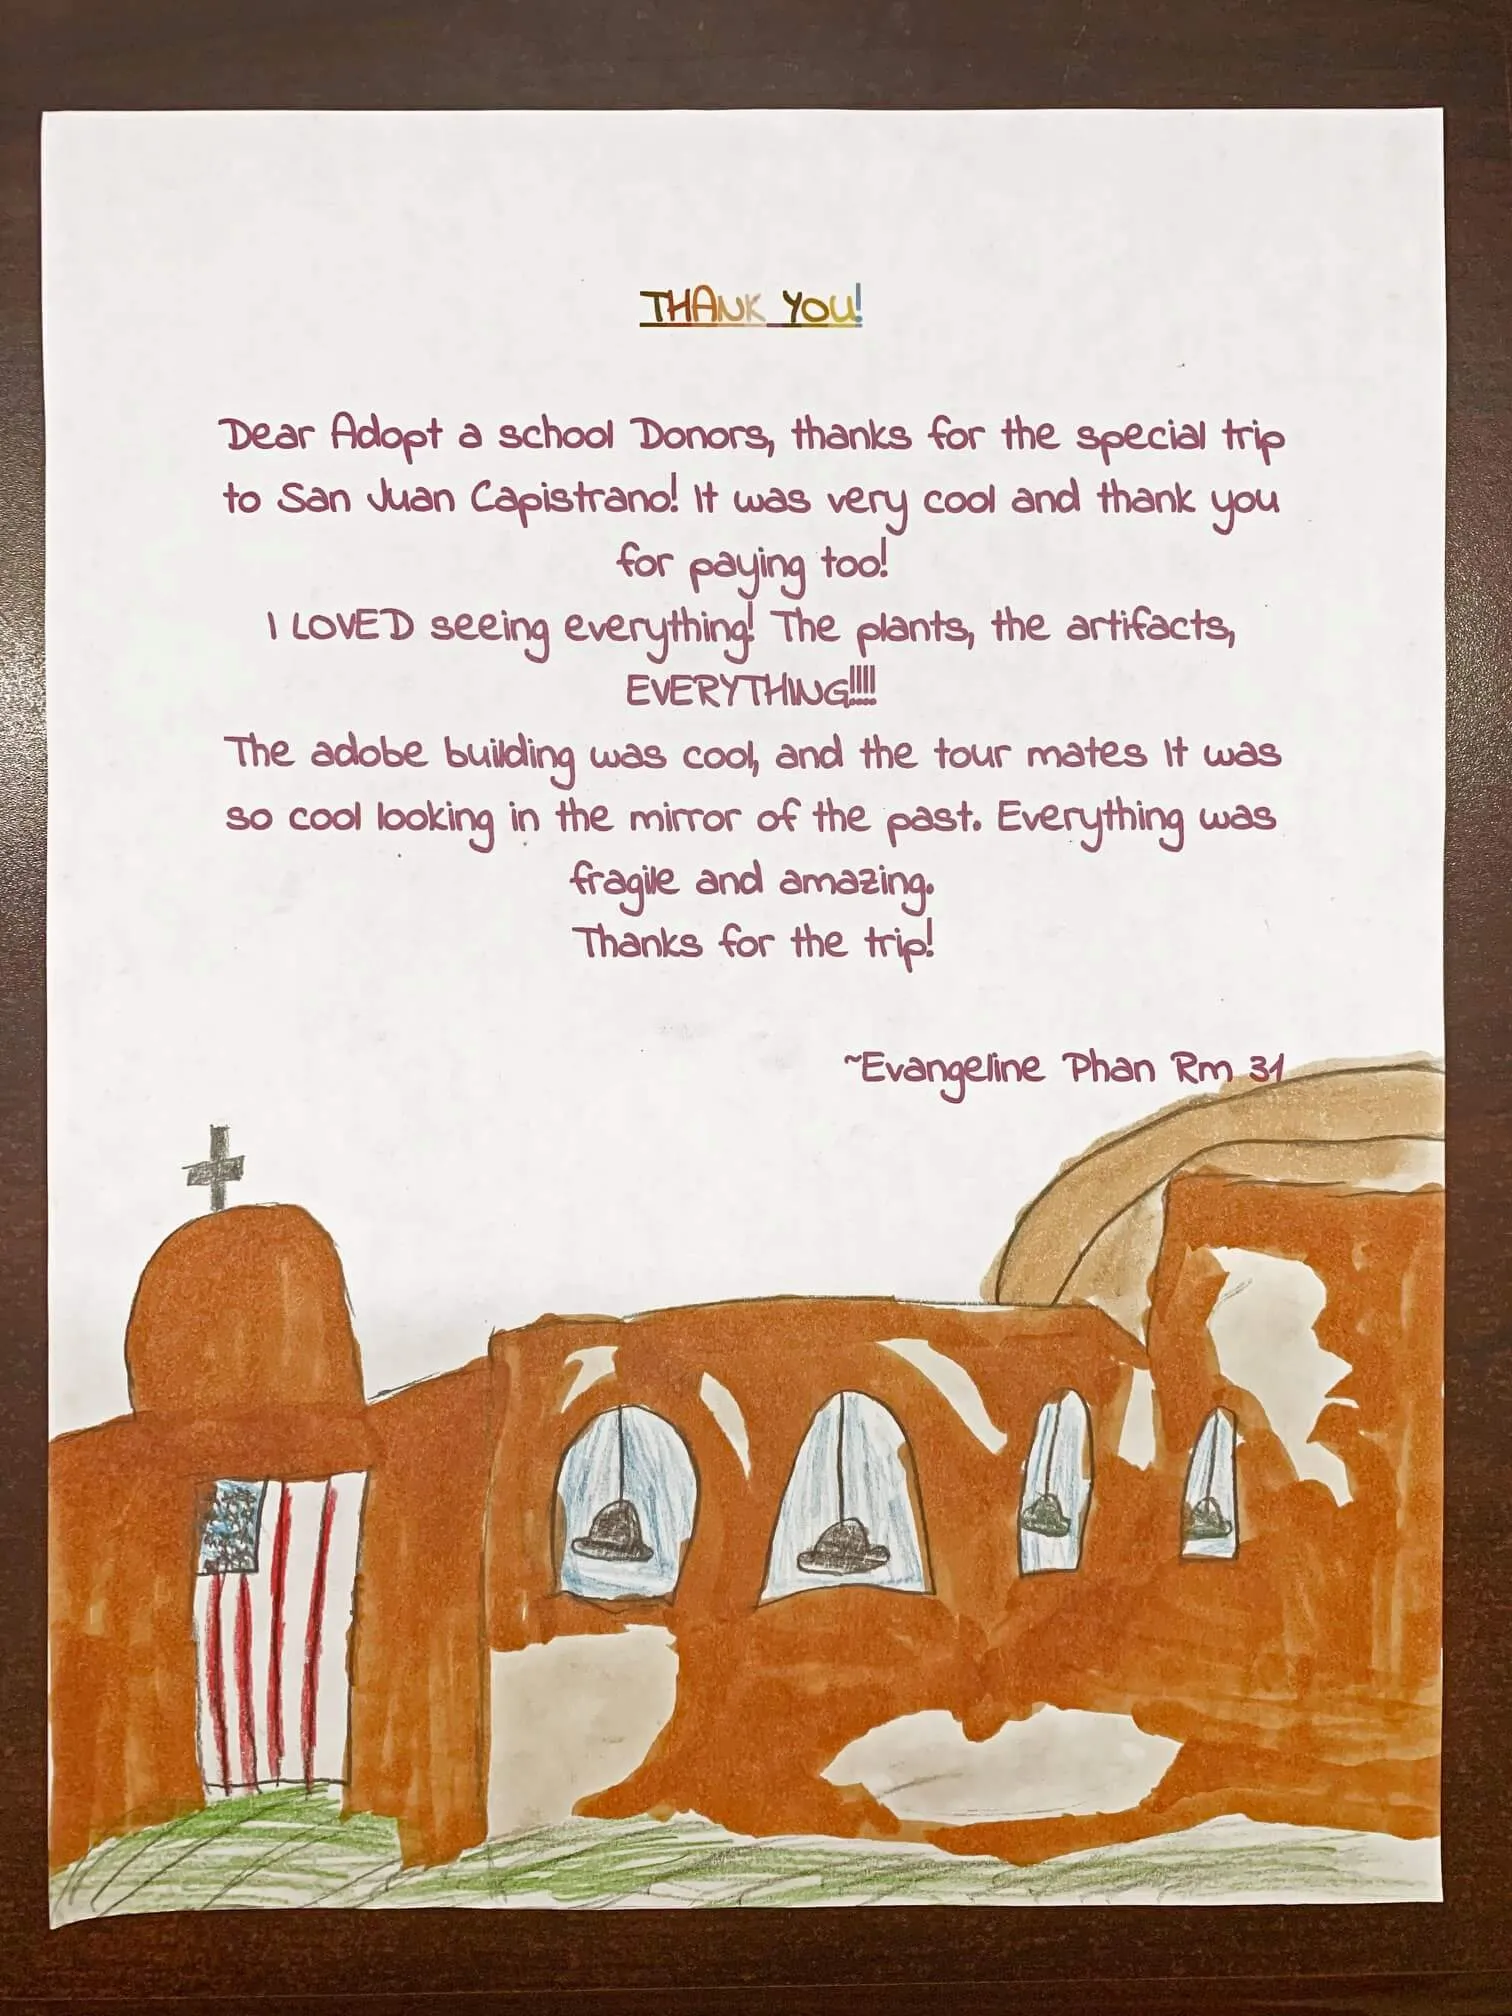 THANK YOU!
Dear Adopt a school Donors, thanks for the special trip
to San Juan Capistrano! It was very cool and thank you
for paying too!
I LOVED seeing everything! The plants, the artifacts,
EVERYTHING!!!!
The adobe building was cool, and the tour mates It was
so cool looking in the mirror of the past. Everything was
fragile and amazing.
Thanks for the trip!
~Evangeline Phan Rm 31